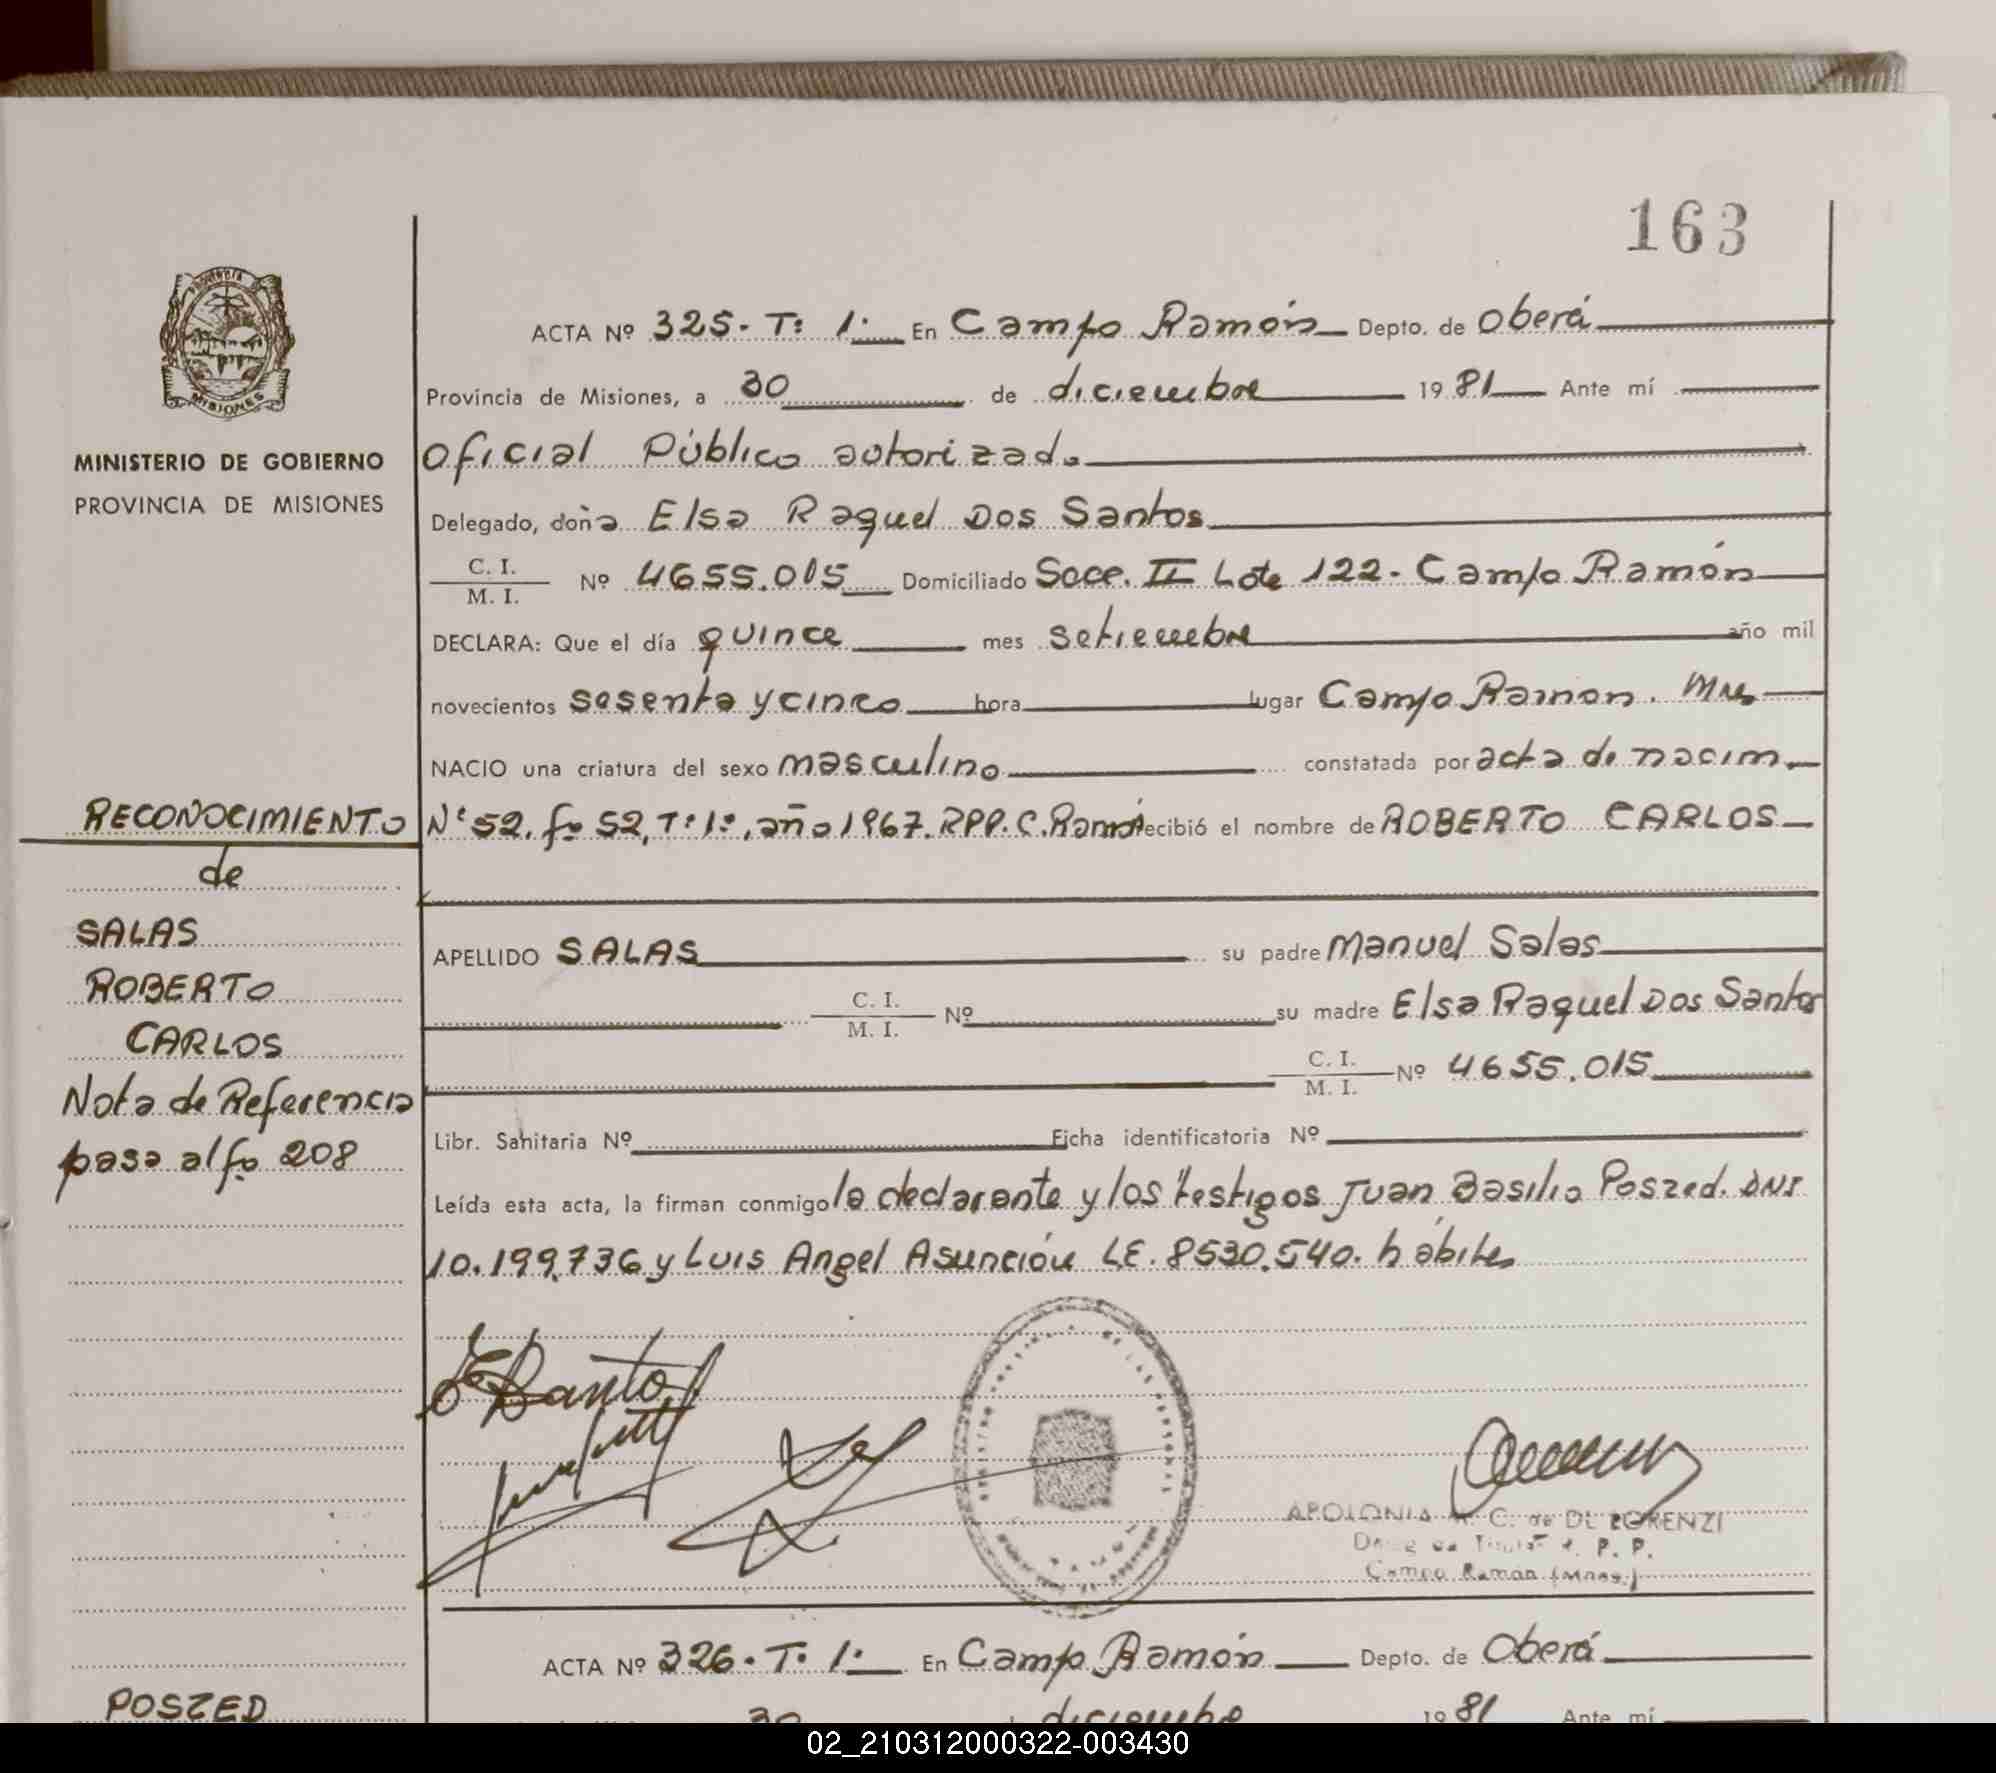 163
ACTA Nº 325. Tº 1º En Campo Ramón Depto. de Oberá
Provincia de Misiones, a 30 de diciembre 1981 Ante mí
MINISTERIO DE GOBIERNO
PROVINCIA DE MISIONES
Oficial Público autorizado
Delegado, doña Elsa Raquel Dos Santos
C. I.
M. I.
Nº 4655.015 Domiciliado Secc. II Lote 122 - Campo Ramón
DECLARA: Que el día quince mes setiembre año mil
novecientos sesenta y cinco hora lugar Campo Ramon. Mnes
NACIO una criatura del sexo masculino constatada por acta de nacim.
Nº 52, fº 52, Tº 1º, año 1967. RPP. C. Ramón recibió el nombre de ROBERTO CARLOS
RECONOCIMIENTO
de
SALAS
ROBERTO
CARLOS
Nota de Referencia
pasa al fº 208
APELLIDO SALAS su padre Manuel Salas
C. I.
M. I.
Nº su madre Elsa Raquel Dos Santos
C. I.
M. I.
Nº 4655.015
Libr. Sanitaria Nº Ficha identificatoria Nº
Leída esta acta, la firman conmigo la declarante y los testigos Juan Basilio Poszed. DNI
10.199.736 y Luis Angel Asunción LE. 8530.540. hábiles
APOLONIA C. de DE LORENZI
P. P.
Campo Ramón (Mnes.)
ACTA Nº 326. Tº 1º En Campo Ramón Depto. de Oberá
POSZED
30 diciembre 1981 Ante mí
02_210312000322-003430